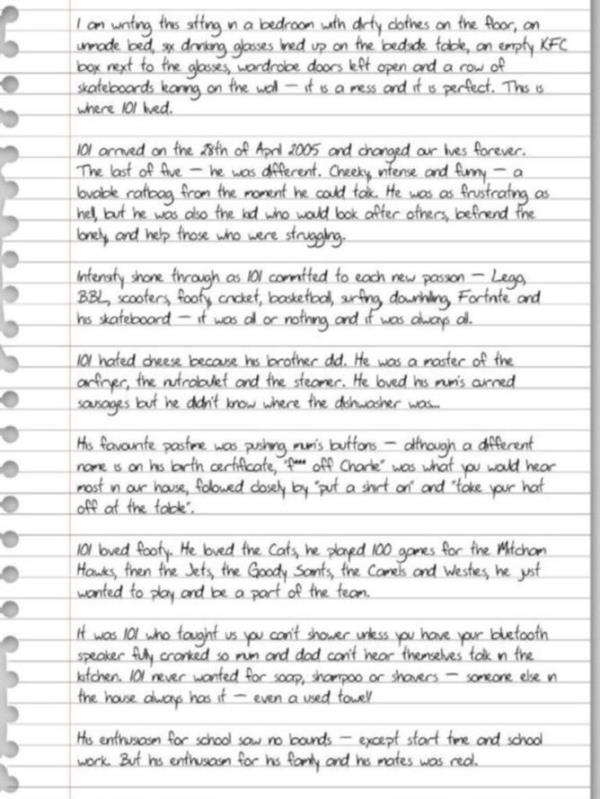 I am writing this sitting in a bedroom with dirty clothes on the floor, an
unmade bed, six drinking glasses lined up on the bedside table, an empty KFC
box next to the glasses, wardrobe doors left open and a row of
skateboards leaning on the wall – it is a mess and it is perfect. This is
where 101 lived.
101 arrived on the 28th of April 2005 and changed our lives forever.
The last of five – he was different. Cheeky, intense and funny – a
lovable ratbag from the moment he could talk. He was as frustrating as
hell, but he was also the kid who would look after others, befriend the
lonely, and help those who were struggling.
Intensity shone through as 101 committed to each new passion – Lego,
BBL, scooters, footy, cricket, basketball, surfing, downhilling, Fortnite and
his skateboard – it was all or nothing and it was always all.
101 hated cheese because his brother did. He was a master of the
airfryer, the nutribullet and the steamer. He loved his mum's curried
sausages but he didn't know where the dishwasher was...
His favourite pastime was pushing mum's buttons – although a different
name is on his birth certificate, "f*** off Charlie" was what you would hear
most in our house, followed closely by "put a shirt on" and "take your hat
off at the table".
101 loved footy. He loved the Cats, he played 100 games for the Mitcham
Hawks, then the Jets, the Goody Saints, the Camels and Westies, he just
wanted to play and be a part of the team.
It was 101 who taught us you can't shower unless you have your bluetooth
speaker fully cranked so mum and dad can't hear themselves talk in the
kitchen. 101 never wanted for soap, shampoo or shavers – someone else in
the house always has it – even a used towel!
His enthusiasm for school saw no bounds – except start time and school
work. But his enthusiasm for his family and his mates was real.